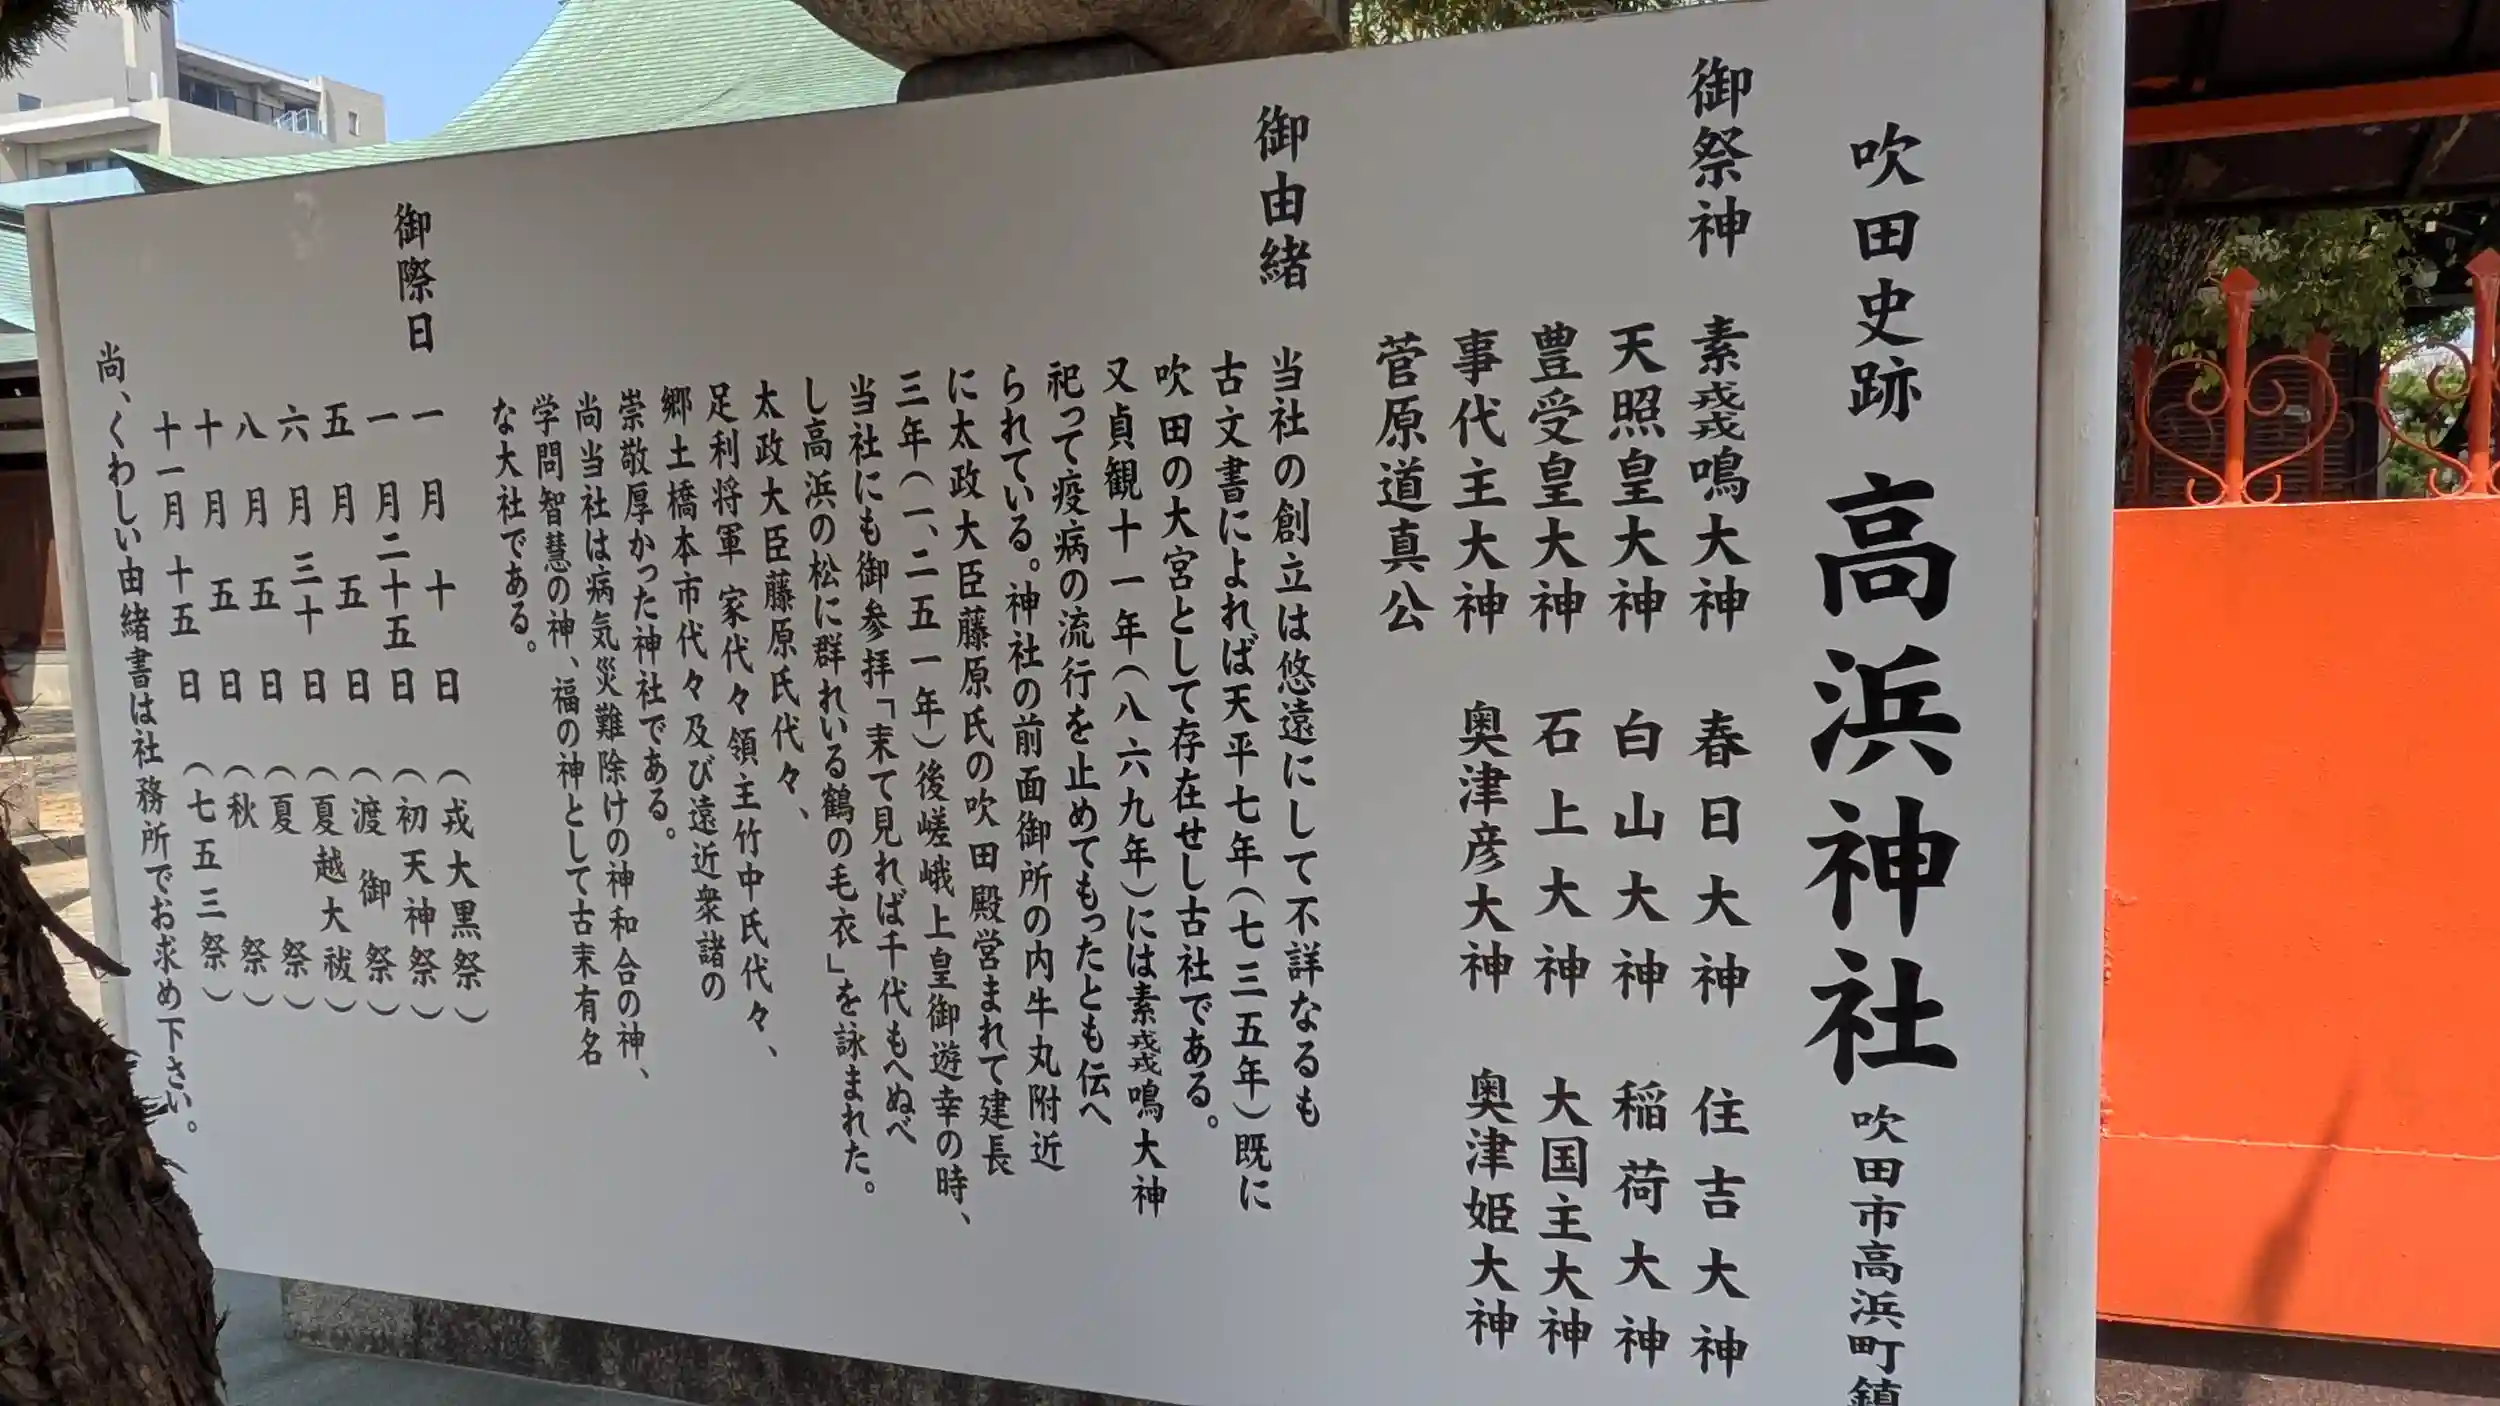 吹田史跡 高浜神社 吹田市高浜町鎮
御祭神 素戔嗚大神 春日大神 住吉大神
天照皇大神 白山大神 稲荷大神
豊受皇大神 石上大神 大国主大神
事代主大神 奥津彦大神 奥津姫大神
菅原道真公
御由緒
当社の創立は悠遠にして不詳なるも
古文書によれば天平七年(七三五年)既に
吹田の大宮として存在せし古社である。
又貞観十一年(八六九年)には素戔嗚大神
祀って疫病の流行を止めてもったとも伝へ
られている。神社の前面御所の内牛丸附近
に太政大臣藤原氏の吹田殿営まれて建長
三年(一、二五一年)後嵯峨上皇御遊幸の時、
当社にも御参拝「来て見れば千代もへぬべ
し高浜の松に群れいる鶴の毛衣」を詠まれた。
太政大臣藤原氏代々、
足利将軍 家代々領主竹中氏代々、
郷土橋本市代々及び遠近衆諸の
崇敬厚かった神社である。
尚当社は病気災難除けの神和合の神、
学問智慧の神、福の神として古来有名
な大社である。
御際日
一月十日 (戎大黒祭)
一月二十五日 (初天神祭)
五月五日 (渡御祭)
六月三十日 (夏越大祓)
八月五日 (夏祭)
十月五日 (秋祭)
十一月十五日 (七五三祭)
尚、くわしい由緒書は社務所でお求め下さい。